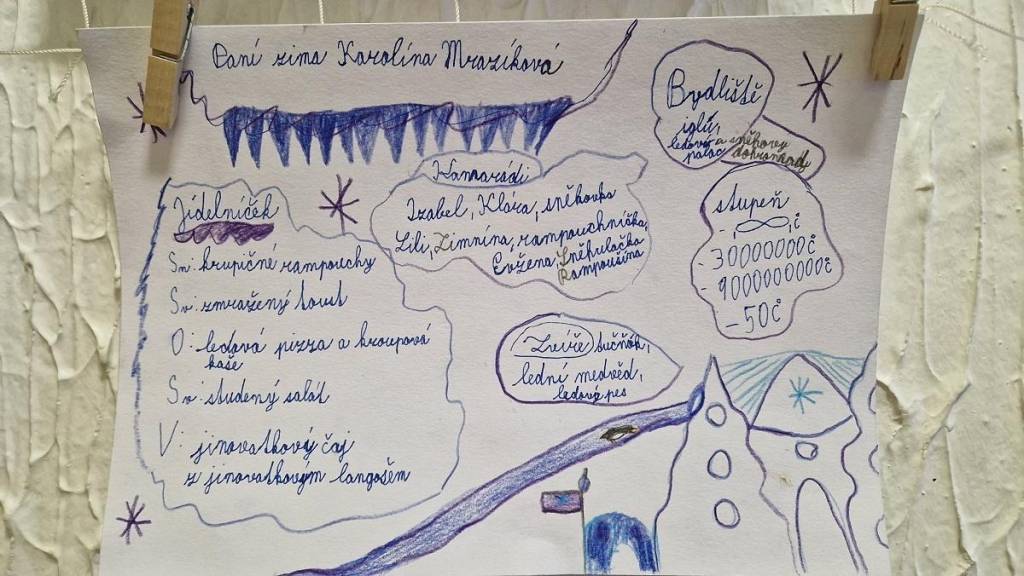 Paní zima Karolína Mrazíková
Bydliště
iglú,
ledový a sněhový
palác
Kamarádi
Izabel, Klára, sněhovka
Lili, Zimnína, rampouchnička,
Evžena Sněhulačka
Rampoušina
Jídelníček
Sn: krupičné rampouchy
Sv: zmražený
O: ledová pizza a kroupová
kaše
Sv: studený salát
V: jinovatkový čaj
z jinovatkovým langošem
stupeň
- ∞ č
- 30000000č
- 9000000000č
- 50č
Zvíře
lední medvěd,
ledový pes